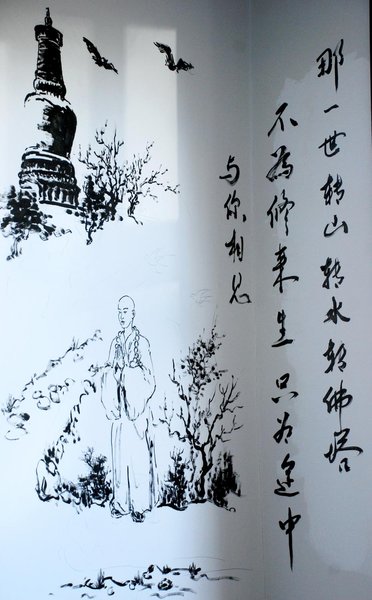 那一世转山转水转佛塔
不為修来生只为途中
与你相见